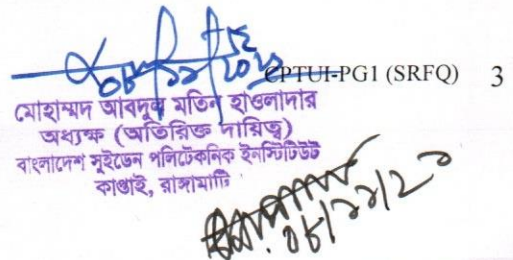 ০৮/১১/২০২৩
CPTUI-PG1 (SRFQ) 3
মোহাম্মদ আবদুল মতিন হাওলাদার
অধ্যক্ষ (অতিরিক্ত দায়িত্ব)
বাংলাদেশ সুইডেন পলিটেকনিক ইনস্টিটিউট
কাপ্তাই, রাঙ্গামাটি
০৮/১১/২৩